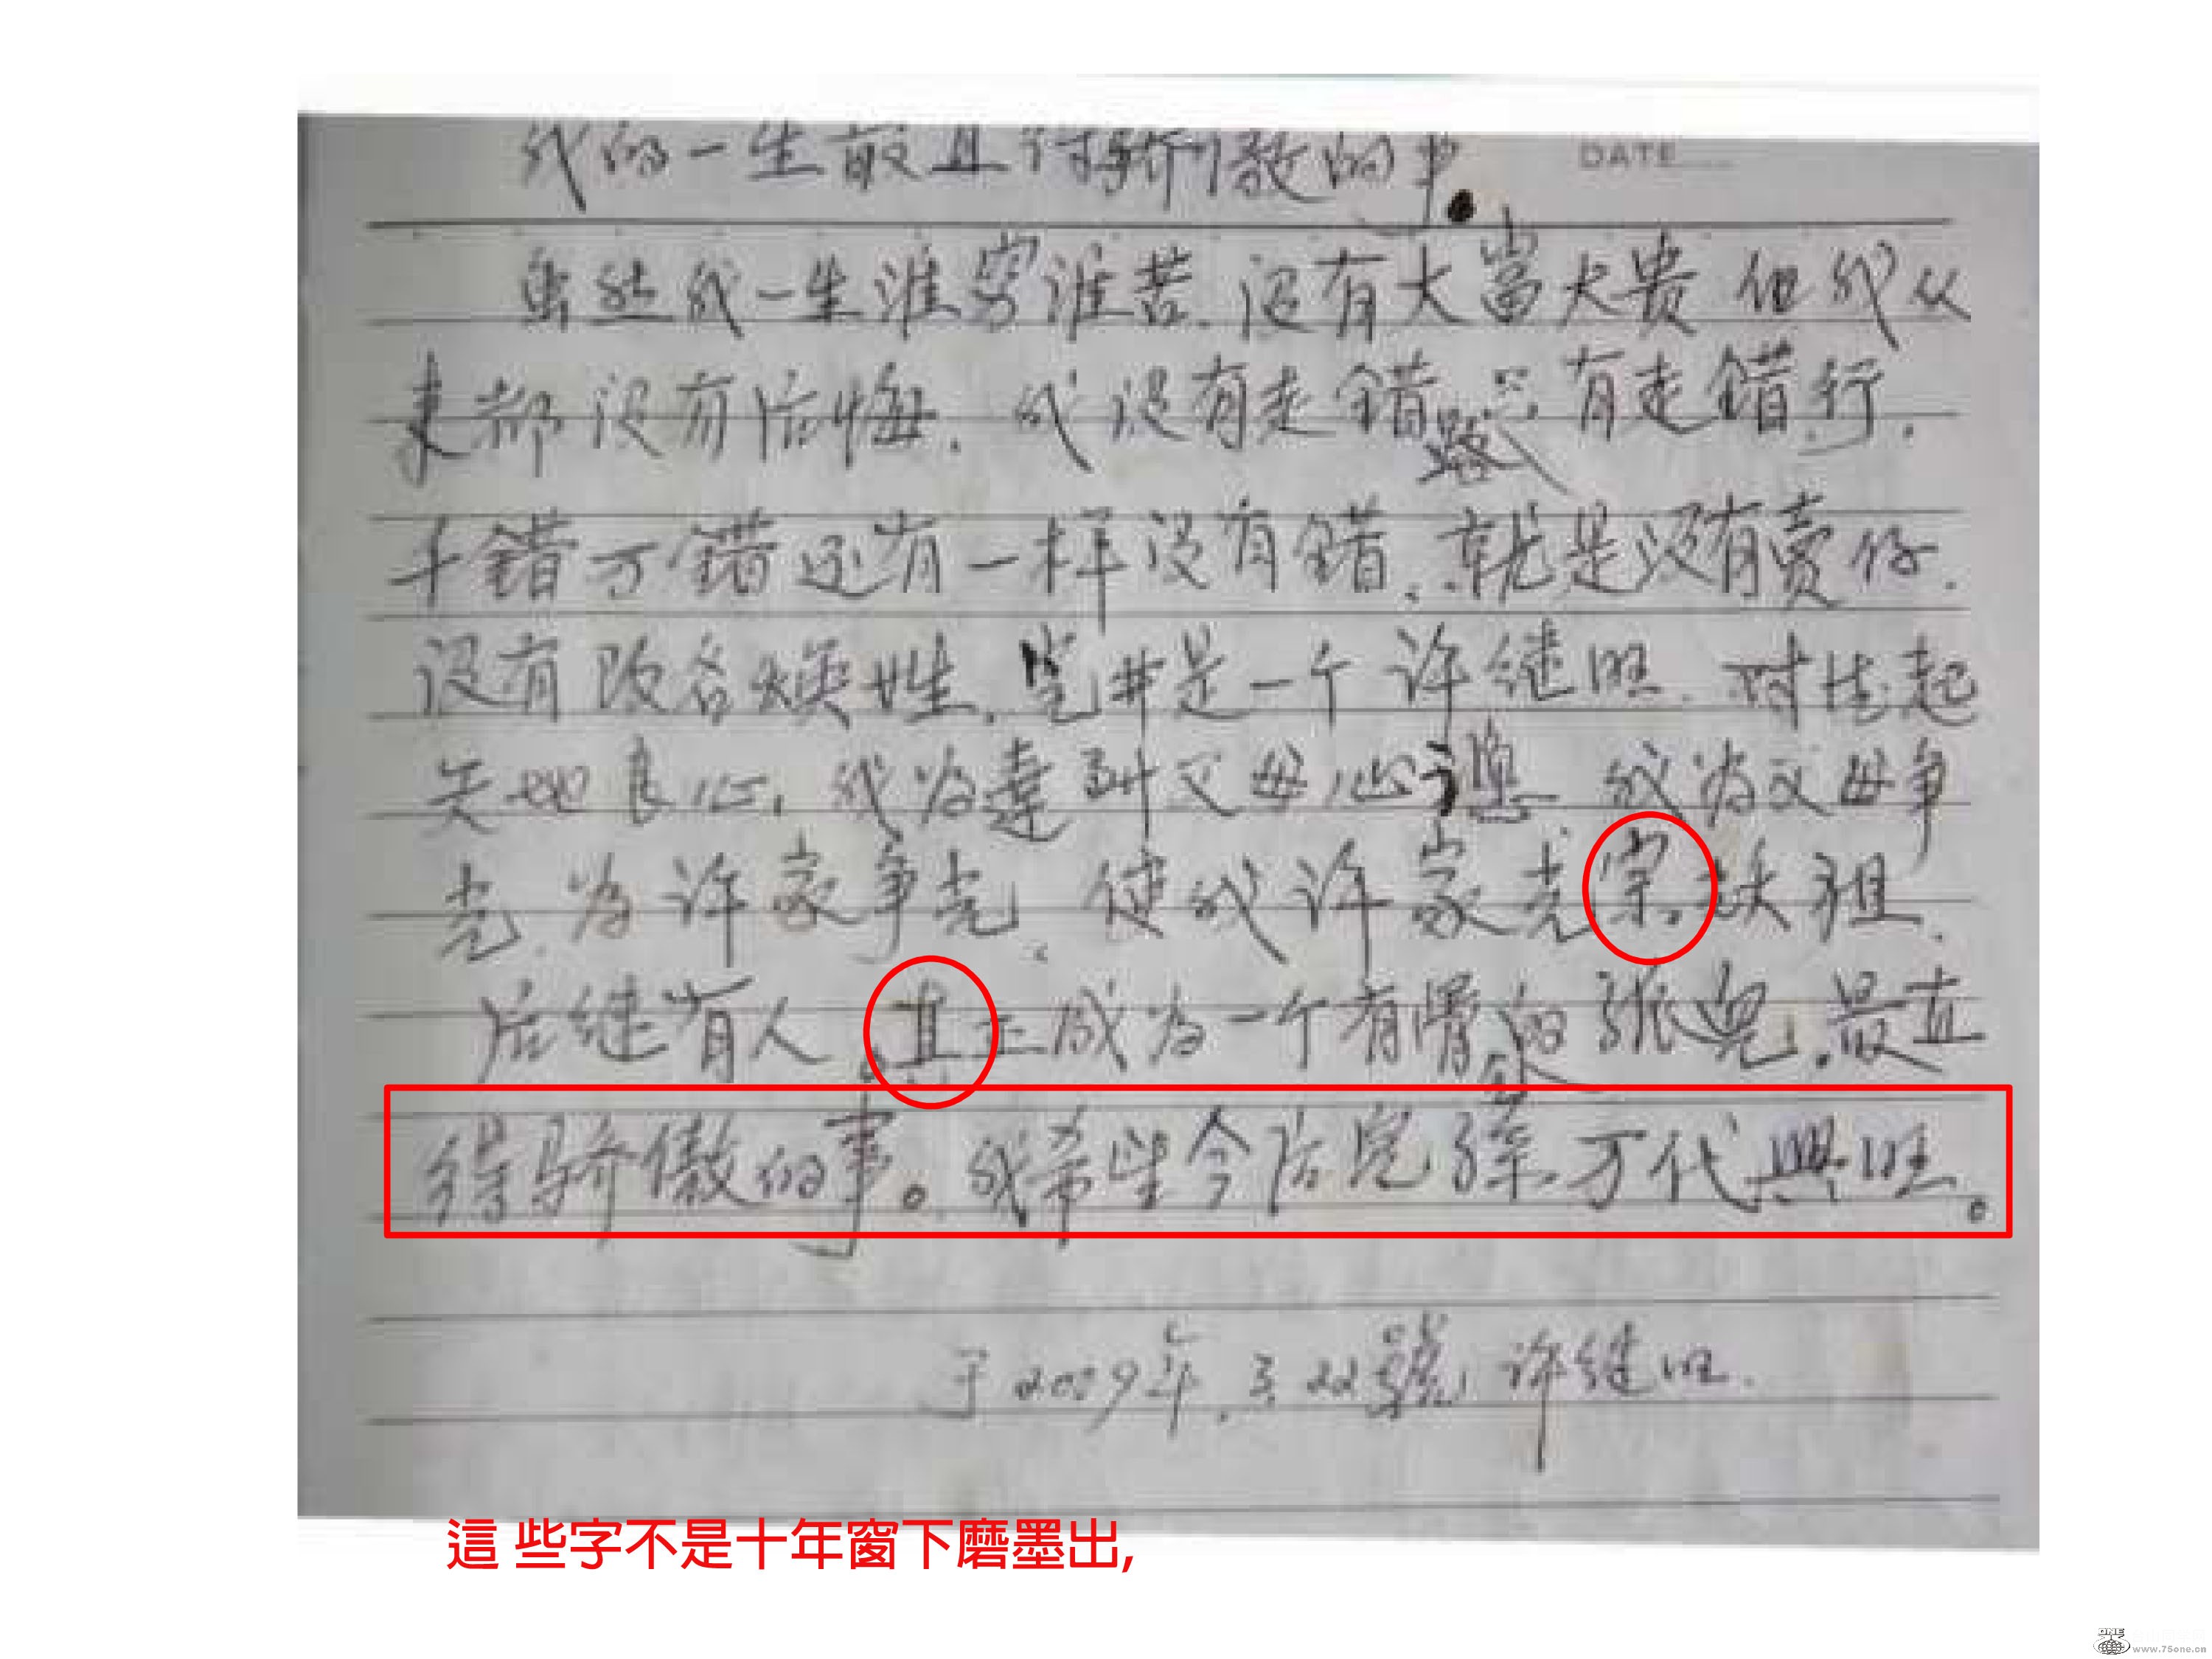 我的一生最直得骄傲的事.
DATE
虽然我一生谁穷谁苦.没有大富大贵 但我从
来都没有后悔.我没有走错路 只有走错行.
千错万错还有一样没有错.就是没有卖仔.
没有改名焕姓.笔井是一个许继旺.对住起
天地良心,我为達到父母心意 我为父母争
光.为许家争光.使我许家光宗 祖.
后继有人 真正成为一个有骨的 兒.最直
得骄傲的事。我希望今后兒孫万代興旺。
于2009年.3.22號 许继旺.
這 些字不是十年窗下磨墨出,
ONE
www.75one.cn